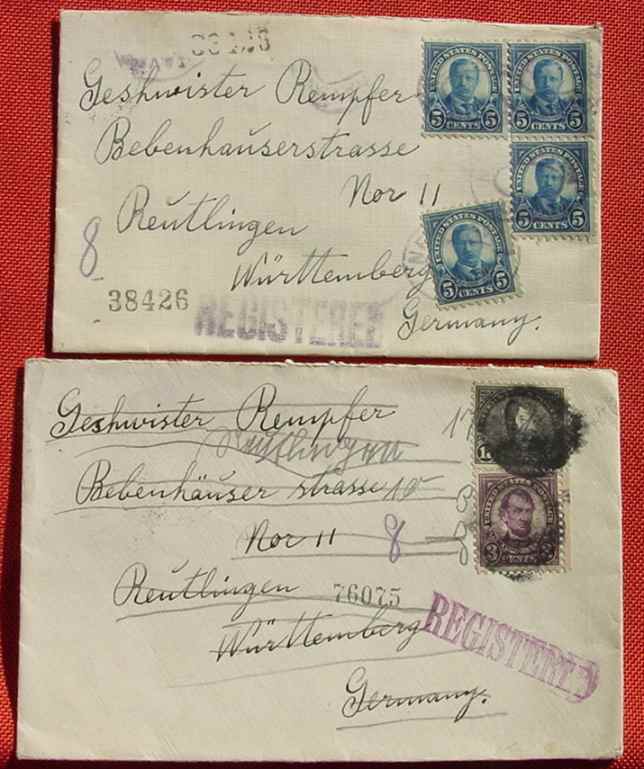 Geshwister Rempfer
Bebenhauserstrasse
Nor 11
Reutlingen
Württemberg
Germany.
8
38426
REGISTERED
UNITED STATES POSTAGE
5 CENTS 5
UNITED STATES POSTAGE
5 CENTS 5
UNITED STATES POSTAGE
5 CENTS 5
UNITED STATES POSTAGE
5 CENTS 5
Geshwister Rempfer
Reutlingen
Bebenhäuser strasse
Nor 11
8
Reutlingen
76075
Württemberg
Germany.
REGISTERED
UNITED STATES POSTAGE
3 CENTS 3